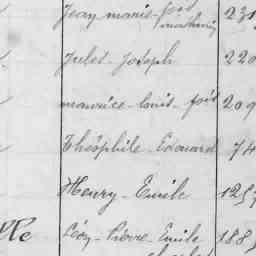 Jean marie-fois 231
mathurin
Jules-Joseph 220
maurice-louis-fois 209
Théophile-Edouard 74
Henry-Emile 125
Léon-Pierre-Emile 188